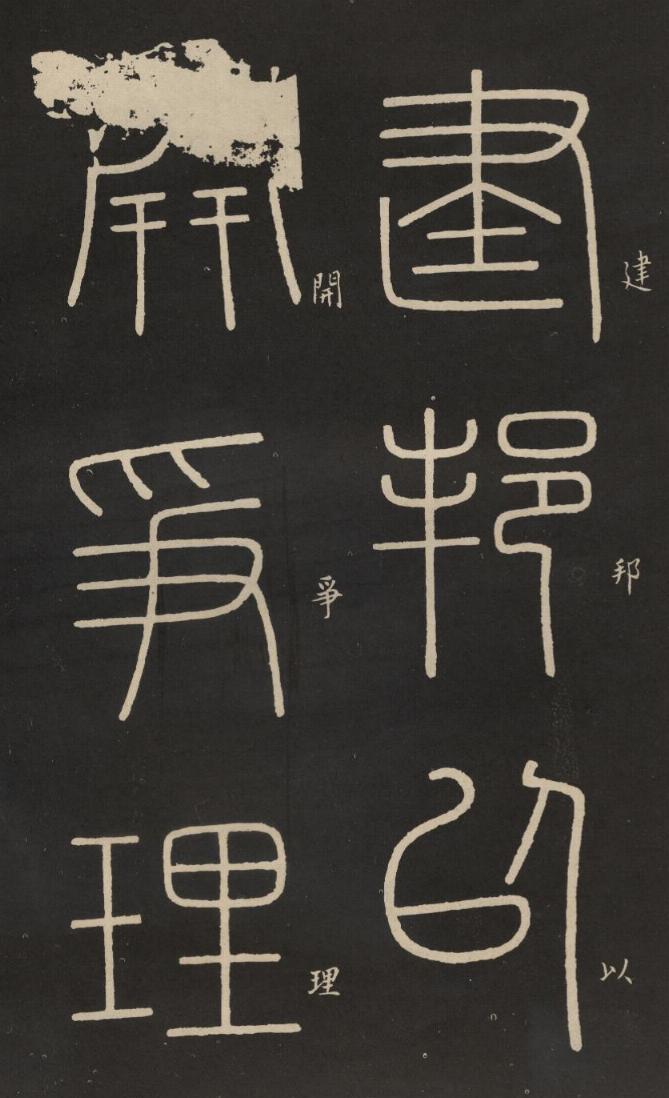 建邦以
建邦以
開爭理
開爭理